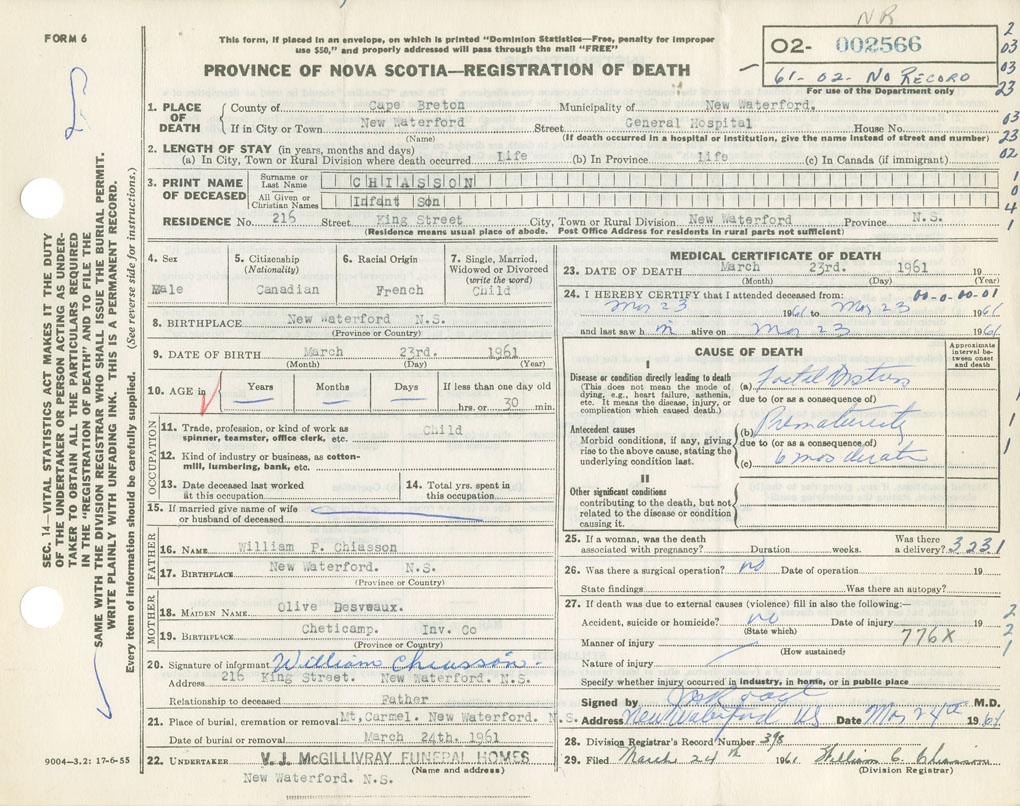 NR
FORM 6
This form, if placed in an envelope, on which is printed "Dominion Statistics—Free, penalty for improper
use $50," and properly addressed will pass through the mail "FREE"
02- 002566
61-02- No Record
For use of the Department only
2
03
03
23
03
23
02
1
0
4
1
PROVINCE OF NOVA SCOTIA—REGISTRATION OF DEATH
1. PLACE OF DEATH
County of Cape Breton Municipality of New Waterford.
If in City or Town New Waterford Street General Hospital House No.
(Name) (If death occurred in a hospital or institution, give the name instead of street and number)
2. LENGTH OF STAY (in years, months and days)
(a) In City, Town or Rural Division where death occurred Life (b) In Province Life (c) In Canada (if immigrant)
3. PRINT NAME OF DECEASED
Surname or Last Name CHIASSON
All Given or Christian Names Infant Son
RESIDENCE No. 216 Street King Street City, Town or Rural Division New Waterford Province N.S.
(Residence means usual place of abode. Post Office Address for residents in rural parts not sufficient)
4. Sex
Male
5. Citizenship
(Nationality)
Canadian
6. Racial Origin
French
7. Single, Married,
Widowed or Divorced
(write the word)
Child
8. BIRTHPLACE New Waterford N.S.
(Province or Country)
9. DATE OF BIRTH March 23rd. 1961
(Month) (Day) (Year)
10. AGE in
Years
Months
Days
If less than one day old
hrs. or 30 min.
OCCUPATION
11. Trade, profession, or kind of work as
spinner, teamster, office clerk, etc. Child
12. Kind of industry or business, as cotton-
mill, lumbering, bank, etc.
13. Date deceased last worked
at this occupation
14. Total yrs. spent in
this occupation
15. If married give name of wife
or husband of deceased
FATHER
16. NAME William P. Chiasson
17. BIRTHPLACE New Waterford. N.S.
(Province or Country)
MOTHER
18. MAIDEN NAME Olive Desvwaux.
19. BIRTHPLACE Cheticamp. Inv. Co
(Province or Country)
20. Signature of informant William Chiasson.
Address 216 King Street. New Waterford. N.S.
Relationship to deceased Father
21. Place of burial, cremation or removal Mt, Carmel. New Waterford. N.S.
Date of burial or removal March 24th. 1961
22. UNDERTAKER V. J. McGILLIVRAY FUNERAL HOMES
(Name and address)
New Waterford. N.S.
MEDICAL CERTIFICATE OF DEATH
23. DATE OF DEATH March 23rd. 1961 19
(Month) (Day) (Year)
24. I HEREBY CERTIFY that I attended deceased from: 00-0-00-01
Mar 23 1961 to Mar 23 1961
and last saw h im alive on Mar 23 1961
CAUSE OF DEATH
Approximate
interval be-
tween onset
and death
I
Disease or condition directly leading to death
(This does not mean the mode of
dying, e.g., heart failure, asthenia,
etc. It means the disease, injury, or
complication which caused death.)
(a) Foetal
due to (or as a consequence of)
Antecedent causes
Morbid conditions, if any, giving
rise to the above cause, stating the
underlying condition last.
(b) Prematurity
due to (or as a consequence of)
(c) 6 mos
II
Other significant conditions
contributing to the death, but not
related to the disease or condition
causing it.
1
1
1
25. If a woman, was the death
associated with pregnancy? Duration weeks. Was there
a delivery? 3231
26. Was there a surgical operation? no Date of operation 19
State findings Was there an autopsy?
27. If death was due to external causes (violence) fill in also the following:—
Accident, suicide or homicide? no Date of injury 19
(State which)
Manner of injury 776X
(How sustained)
Nature of injury
Specify whether injury occurred in industry, in home, or in public place
2
2
1
Signed by M.D.
Address New Waterford NS Date Mar 24th 1961
28. Division Registrar's Record Number 398
29. Filed March 24th 1961 William C. Chiasson
(Division Registrar)
SEC. 14—VITAL STATISTICS ACT MAKES IT THE DUTY
OF THE UNDERTAKER OR PERSON ACTING AS UNDER-
TAKER TO OBTAIN ALL THE PARTICULARS REQUIRED
IN THE "REGISTRATION OF DEATH" AND TO FILE THE
SAME WITH THE DIVISION REGISTRAR WHO SHALL ISSUE THE BURIAL PERMIT.
WRITE PLAINLY WITH UNFADING INK. THIS IS A PERMANENT RECORD.
Every item of information should be carefully supplied. (See reverse side for instructions.)
9004—3.2: 17-6-55